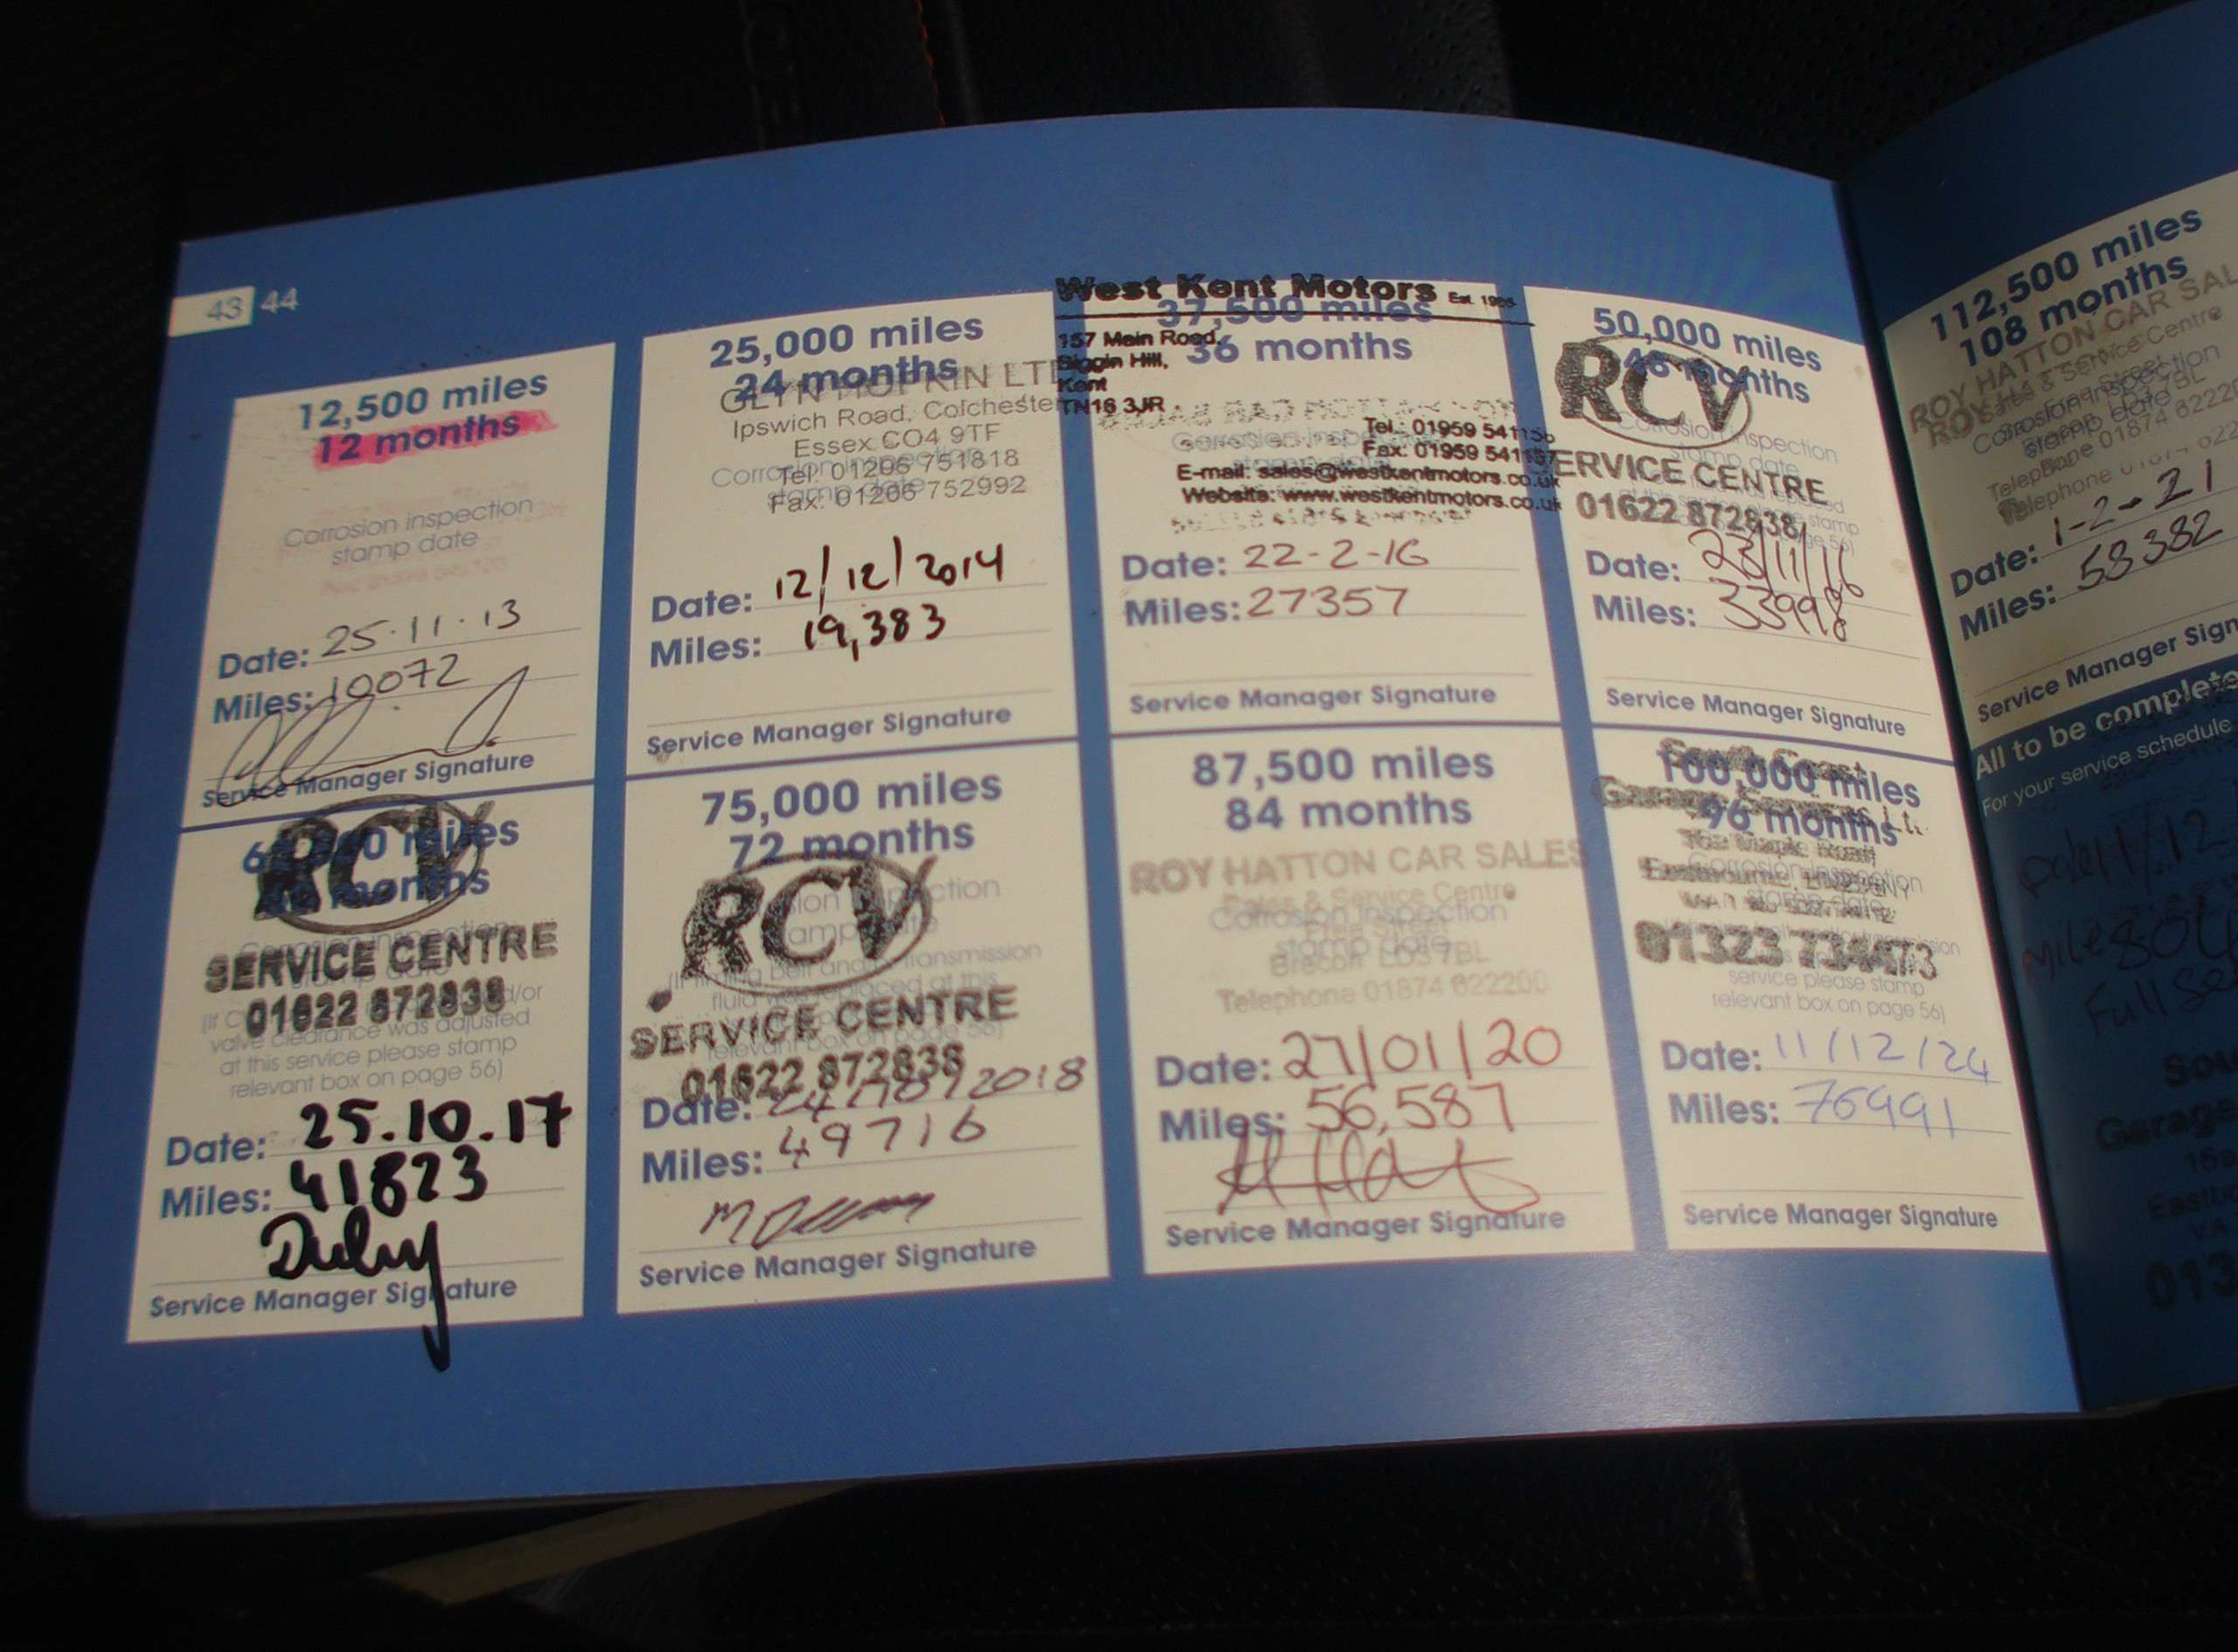 43 44
12,500 miles
12 months
Corrosion inspection
stamp date
Date: 25.11.13
Miles: 10072
Service Manager Signature
25,000 miles
24 months
GLYN HOPKIN LTD
Ipswich Road, Colchester
Essex CO4 9TF
Corrosion inspection
Tel: 01206 751818
stamp date
Fax: 01206 752992
Date: 12/12/2014
Miles: 19,383
Service Manager Signature
West Kent Motors
37,500 miles
36 months
157 Main Road,
Biggin Hill,
Kent
TN16 3JR
Tel.: 01959 541156
Fax: 01959 541157
E-mail: sales@westkentmotors.co.uk
Website: www.westkentmotors.co.uk
Corrosion inspection
Date: 22-2-16
Miles: 27357
Service Manager Signature
50,000 miles
48 months
RCV
Corrosion inspection
stamp date
SERVICE CENTRE
01622 872838
Date: 23/11/16
Miles: 33998
Service Manager Signature
miles
months
RCV
SERVICE CENTRE
01622 872838
valve clearance was adjusted
at this service please stamp
relevant box on page 56)
Date: 25.10.17
Miles: 41823
Service Manager Signature
75,000 miles
72 months
RCV
SERVICE CENTRE
01622 872838
relevant box on page 56)
Date: 24/10/2018
Miles: 49716
Service Manager Signature
87,500 miles
84 months
ROY HATTON CAR SALES
Sales & Service Centre
Corrosion inspection
Free Street
stamp date
Brecon LD3 7BL
Telephone 01874 622200
Date: 27/01/20
Miles: 56,587
Service Manager Signature
South Coast
100,000 miles
Garage Services Lt.
96 months
Corrosion inspection
Eastbourne,
stamp date
01323 734473
service please stamp
relevant box on page 56)
Date: 11/12/24
Miles: 76991
Service Manager Signature
112,500 miles
108 months
ROY HATTON CAR SAL
Sales & Service Centre
Corrosion inspection
stamp date
Telephone 01874 6222
Date: 1-2-21
Miles: 58382
Service Manager Sign
All to be complete
For your service schedule
Full Se
Sou
Garage
Eastb
013